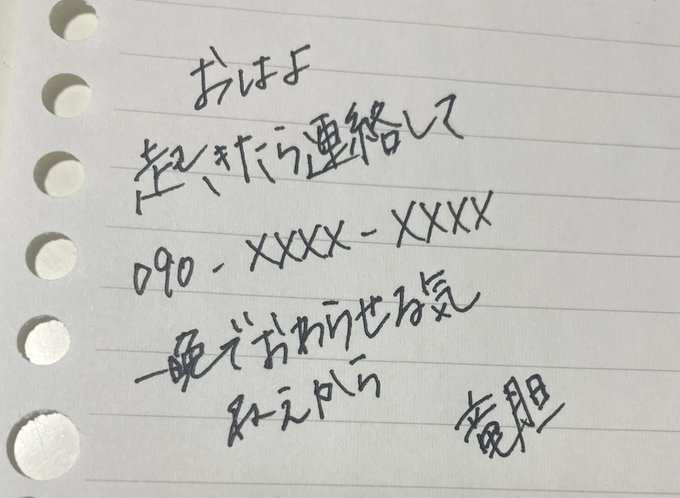 おはよ
起きたら連絡して
090-XXXX-XXXX
一晩でおわらせる気
ねえから
竜胆